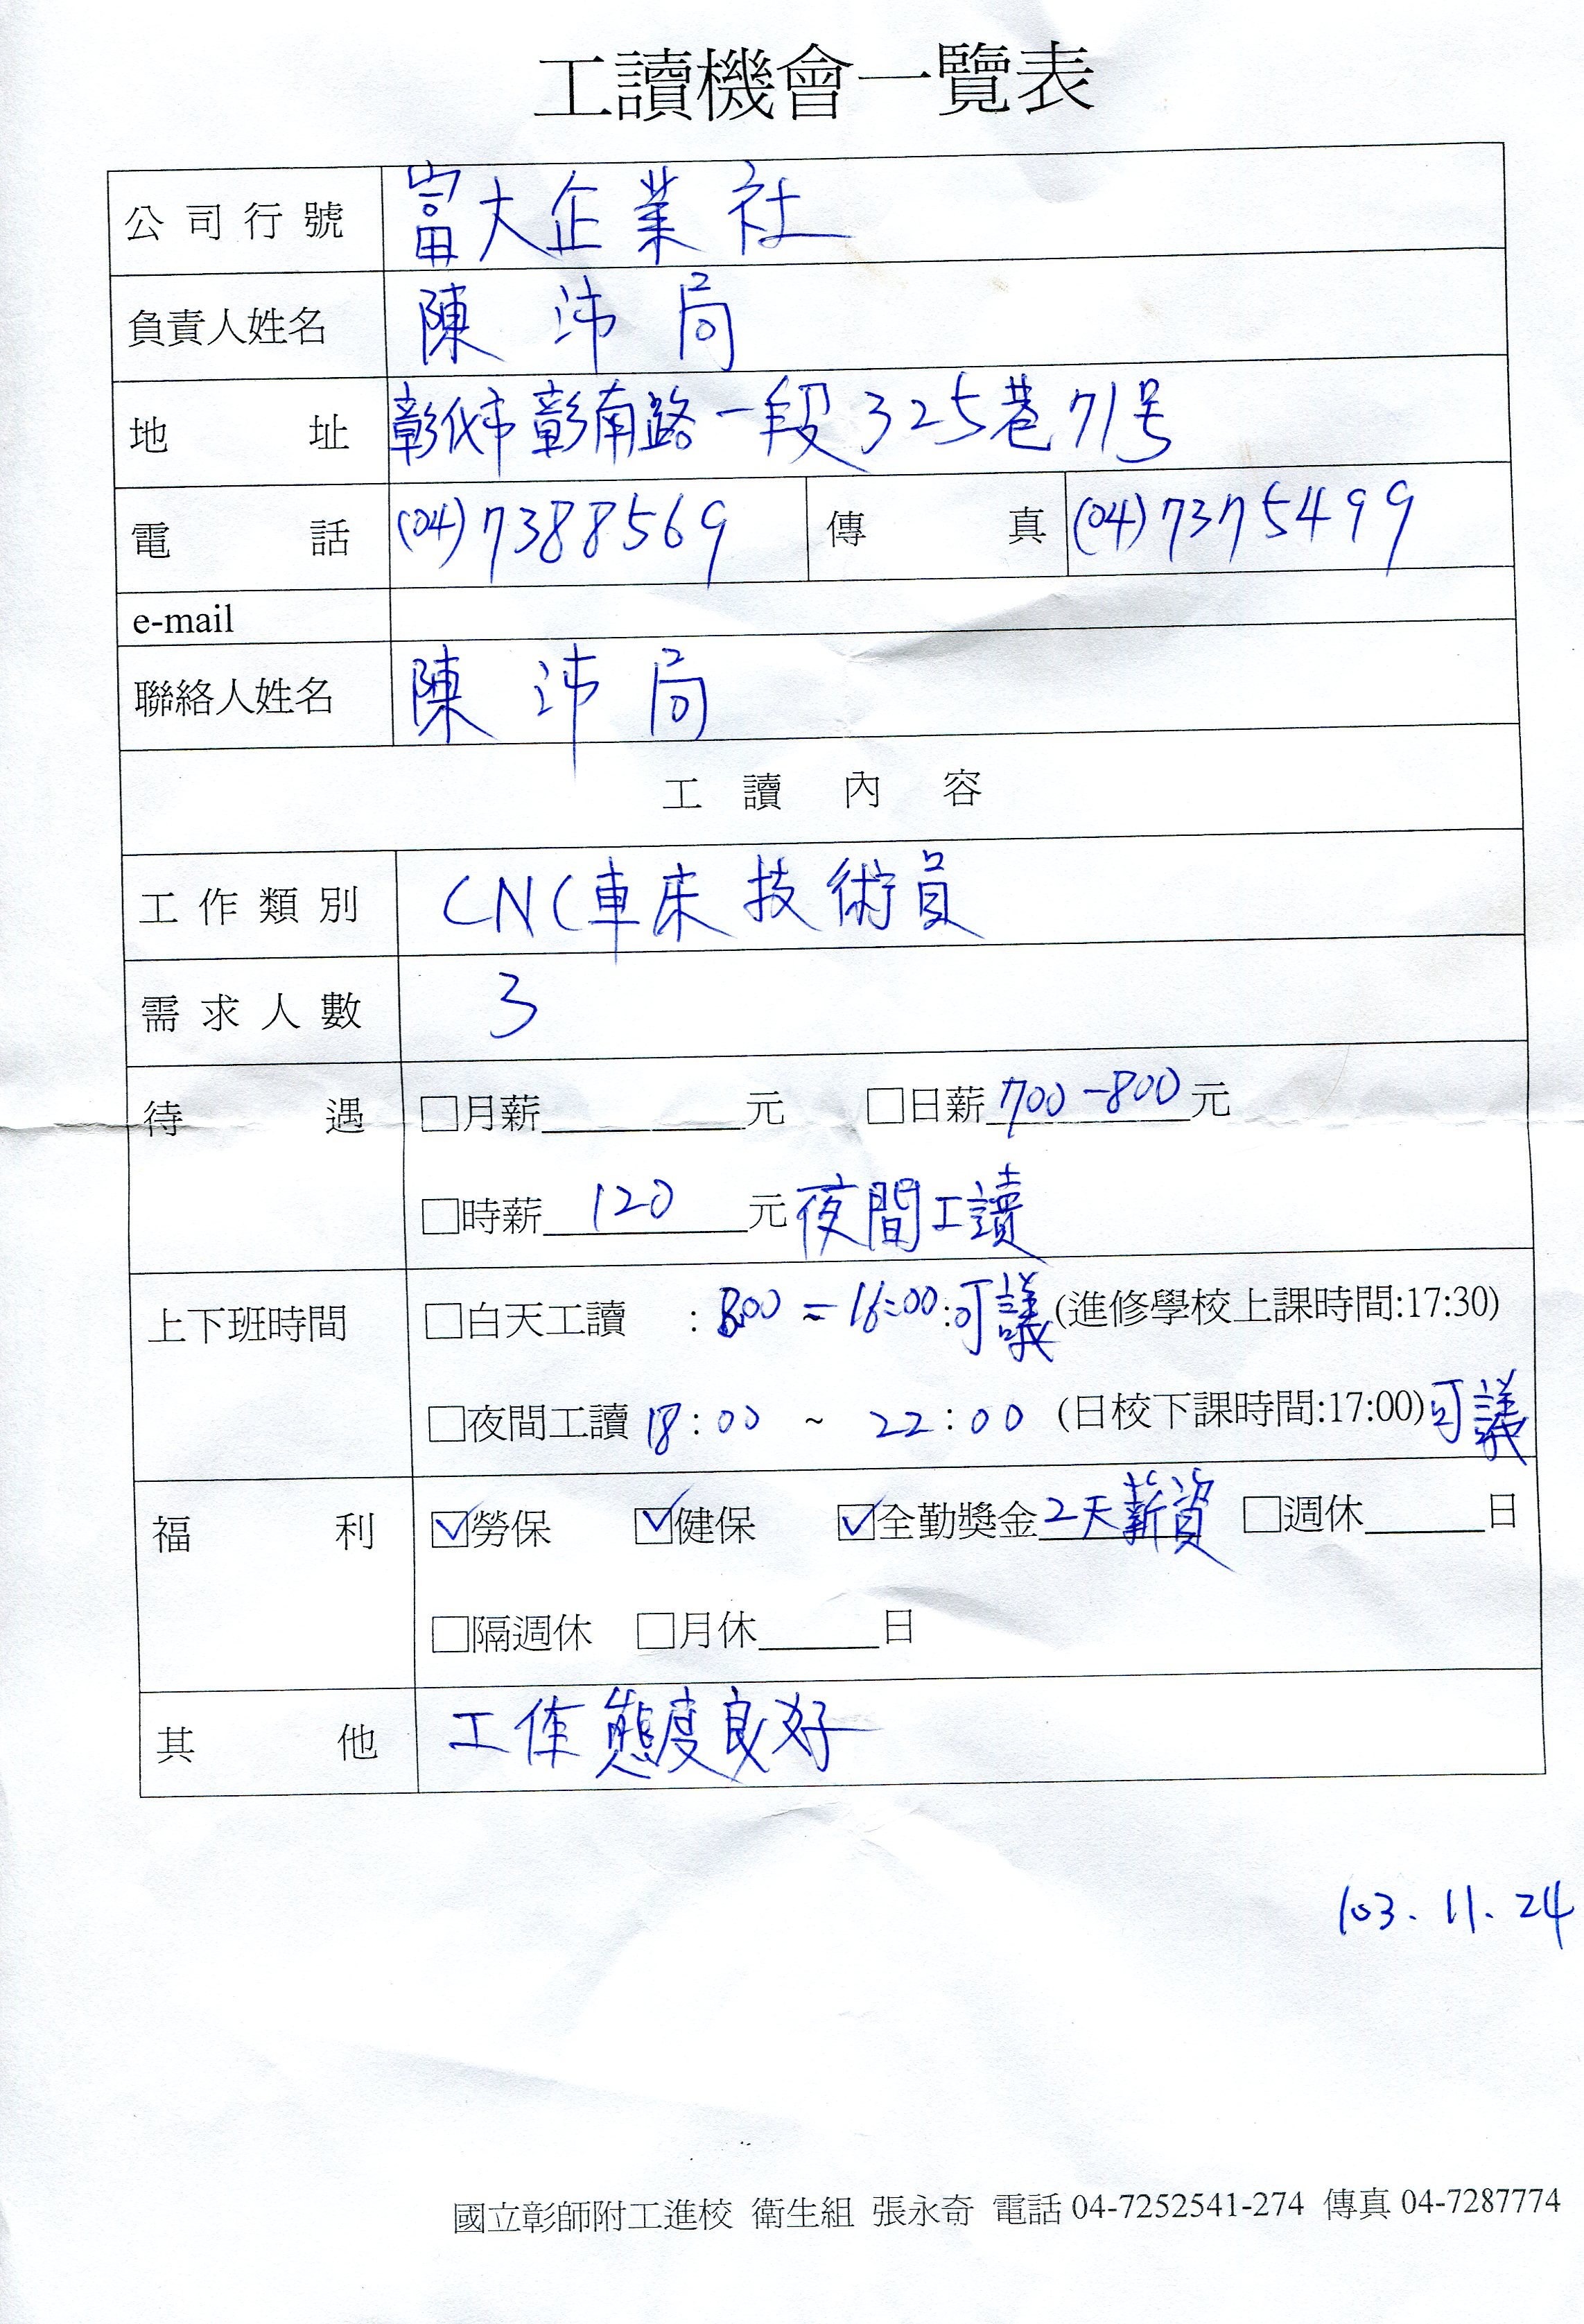 工讀機會一覽表
公司行號 富大企業社
負責人姓名 陳沛局
地址 彰化市彰南路一段325巷71号
電話 (04)7388569 傳真 (04)7375499
e-mail
聯絡人姓名 陳沛局
工讀內容
工作類別 CNC車床技術員
需求人數 3
待遇 □月薪______元 □日薪700-800元
□時薪120元 夜間工讀
上下班時間 □白天工讀 : 8:00 ~ 16:00 : 可議 (進修學校上課時間:17:30)
□夜間工讀 18:00 ~ 22:00 (日校下課時間:17:00) 可議
福利 ☑勞保 ☑健保 ☑全勤獎金2天薪資 □週休______日
□隔週休 □月休______日
其他 工作態度良好
103.11.24
國立彰師附工進校 衛生組 張永奇 電話 04-7252541-274 傳真 04-7287774